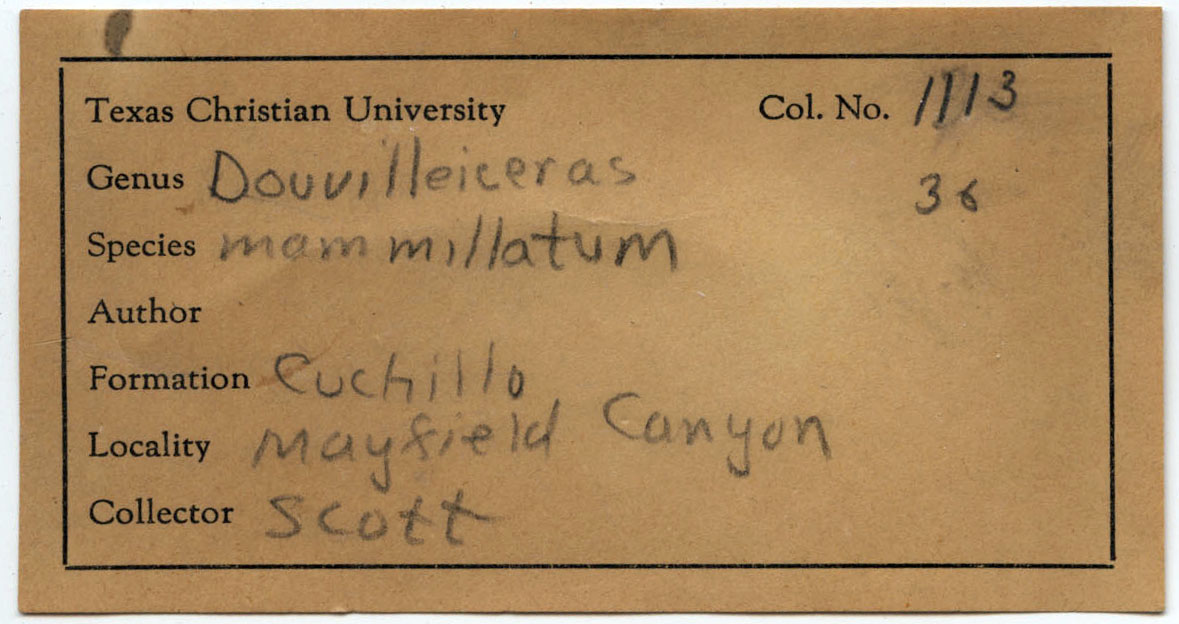 Texas Christian University Col. No. 1113
Genus Douvilleiceras 36
Species mammillatum
Author
Formation Cuchillo
Locality Mayfield Canyon
Collector Scott